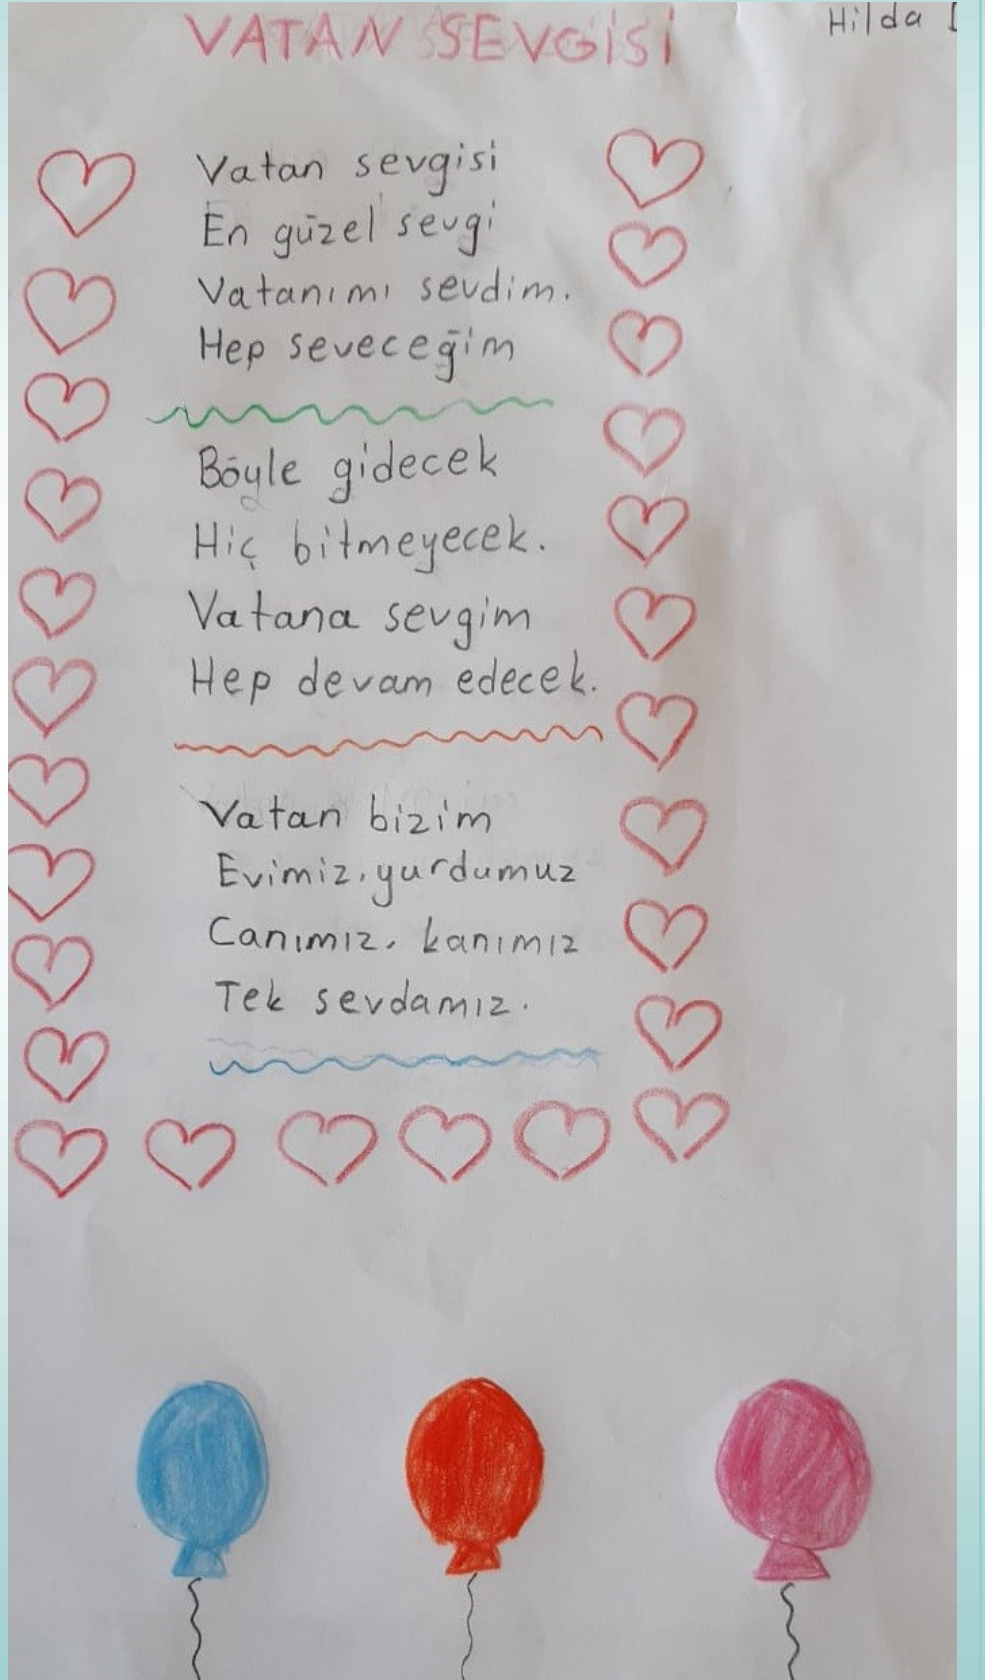 VATAN SEVGİSİ
Hilda
Vatan sevgisi
En güzel sevgi
Vatanımı sevdim.
Hep seveceğim
Böyle gidecek
Hiç bitmeyecek.
Vatana sevgim
Hep devam edecek.
Vatan bizim
Evimiz, yurdumuz
Canımız, kanımız
Tek sevdamız.